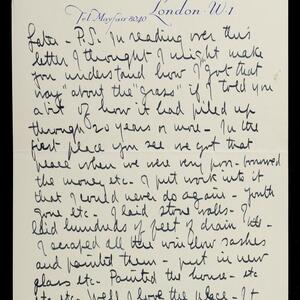 London · W·1
Tel. Mayfair 8040
Later - P.S. In reading over this
letter I thought I might make
you understand how I got that
way "about the "grass" if I told you
a bit of how it had piled up
through 20 years or more - In the
first place you see we got that
place when we were very poor - borrowed
the money etc - I put work into it
that I would never do again - youth
gone etc - I laid stone walls - I
laid hundreds of feet of drain tile -
I scraped all the window sashes
and painted them - put in new
glass etc - Painted the house - etc
etc etc. Well I love the place - It